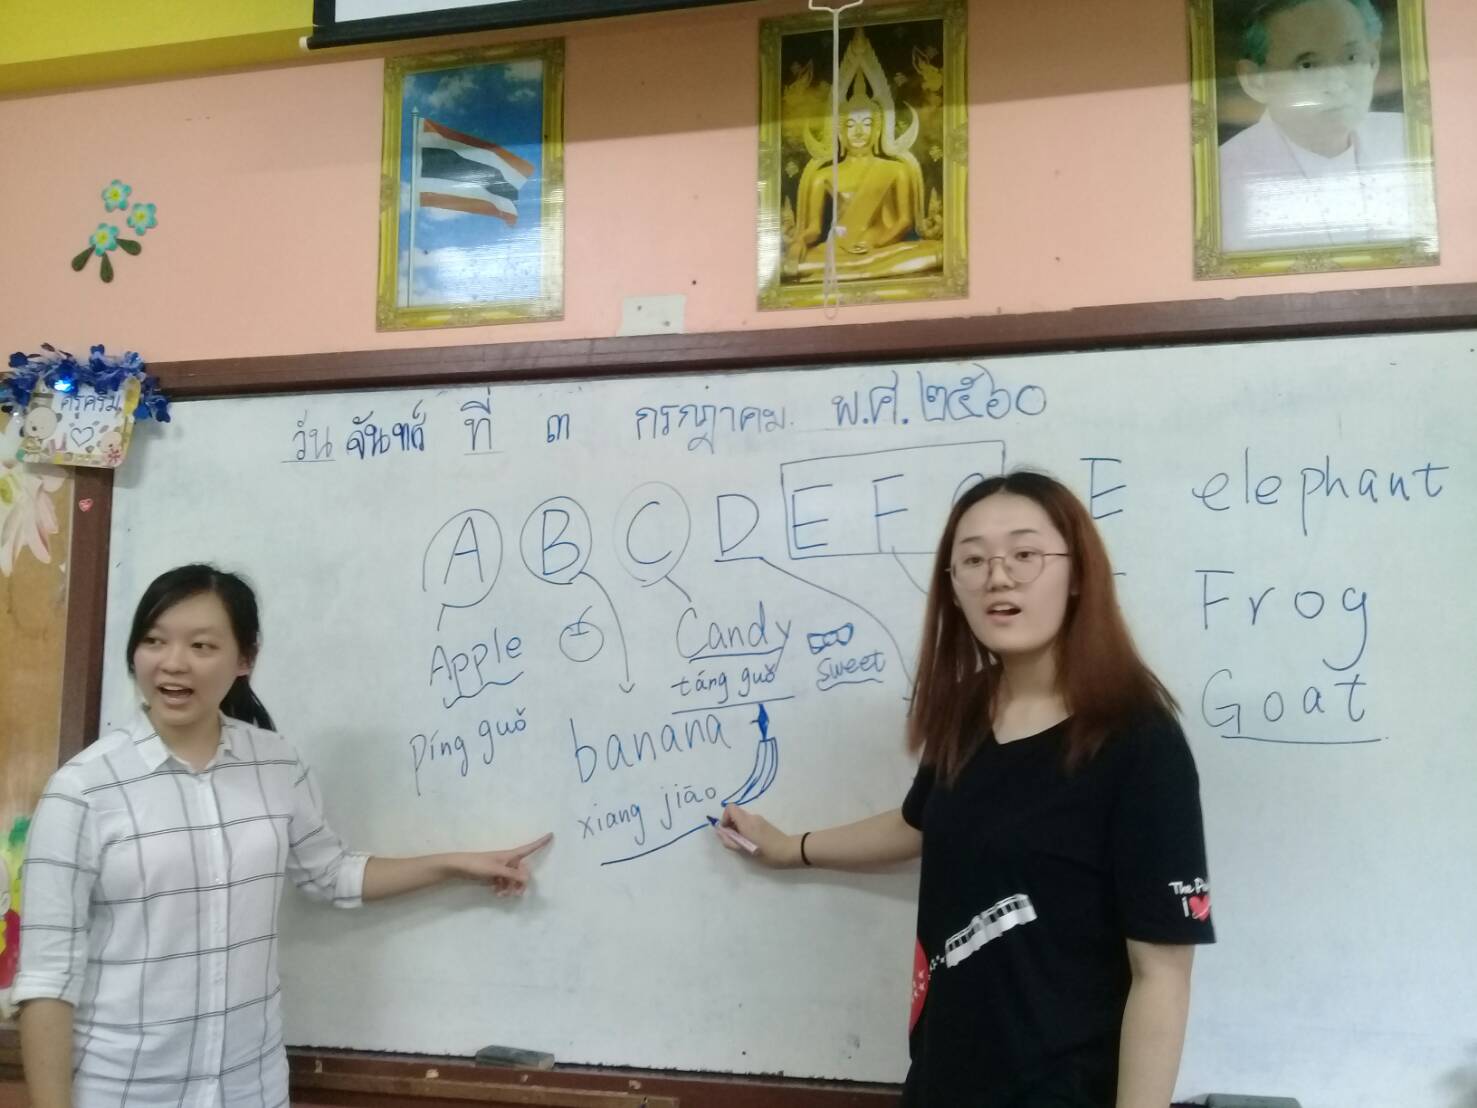 วันจันทร์ ที่ ๓ กรกฎาคม. พ.ศ. ๒๕๖๐
ครูครีม
A B C D E F
E elephant
Apple
Candy
sweet
Frog
píng guǒ
táng guǒ
Goat
banana
xiang jiāo
The
i